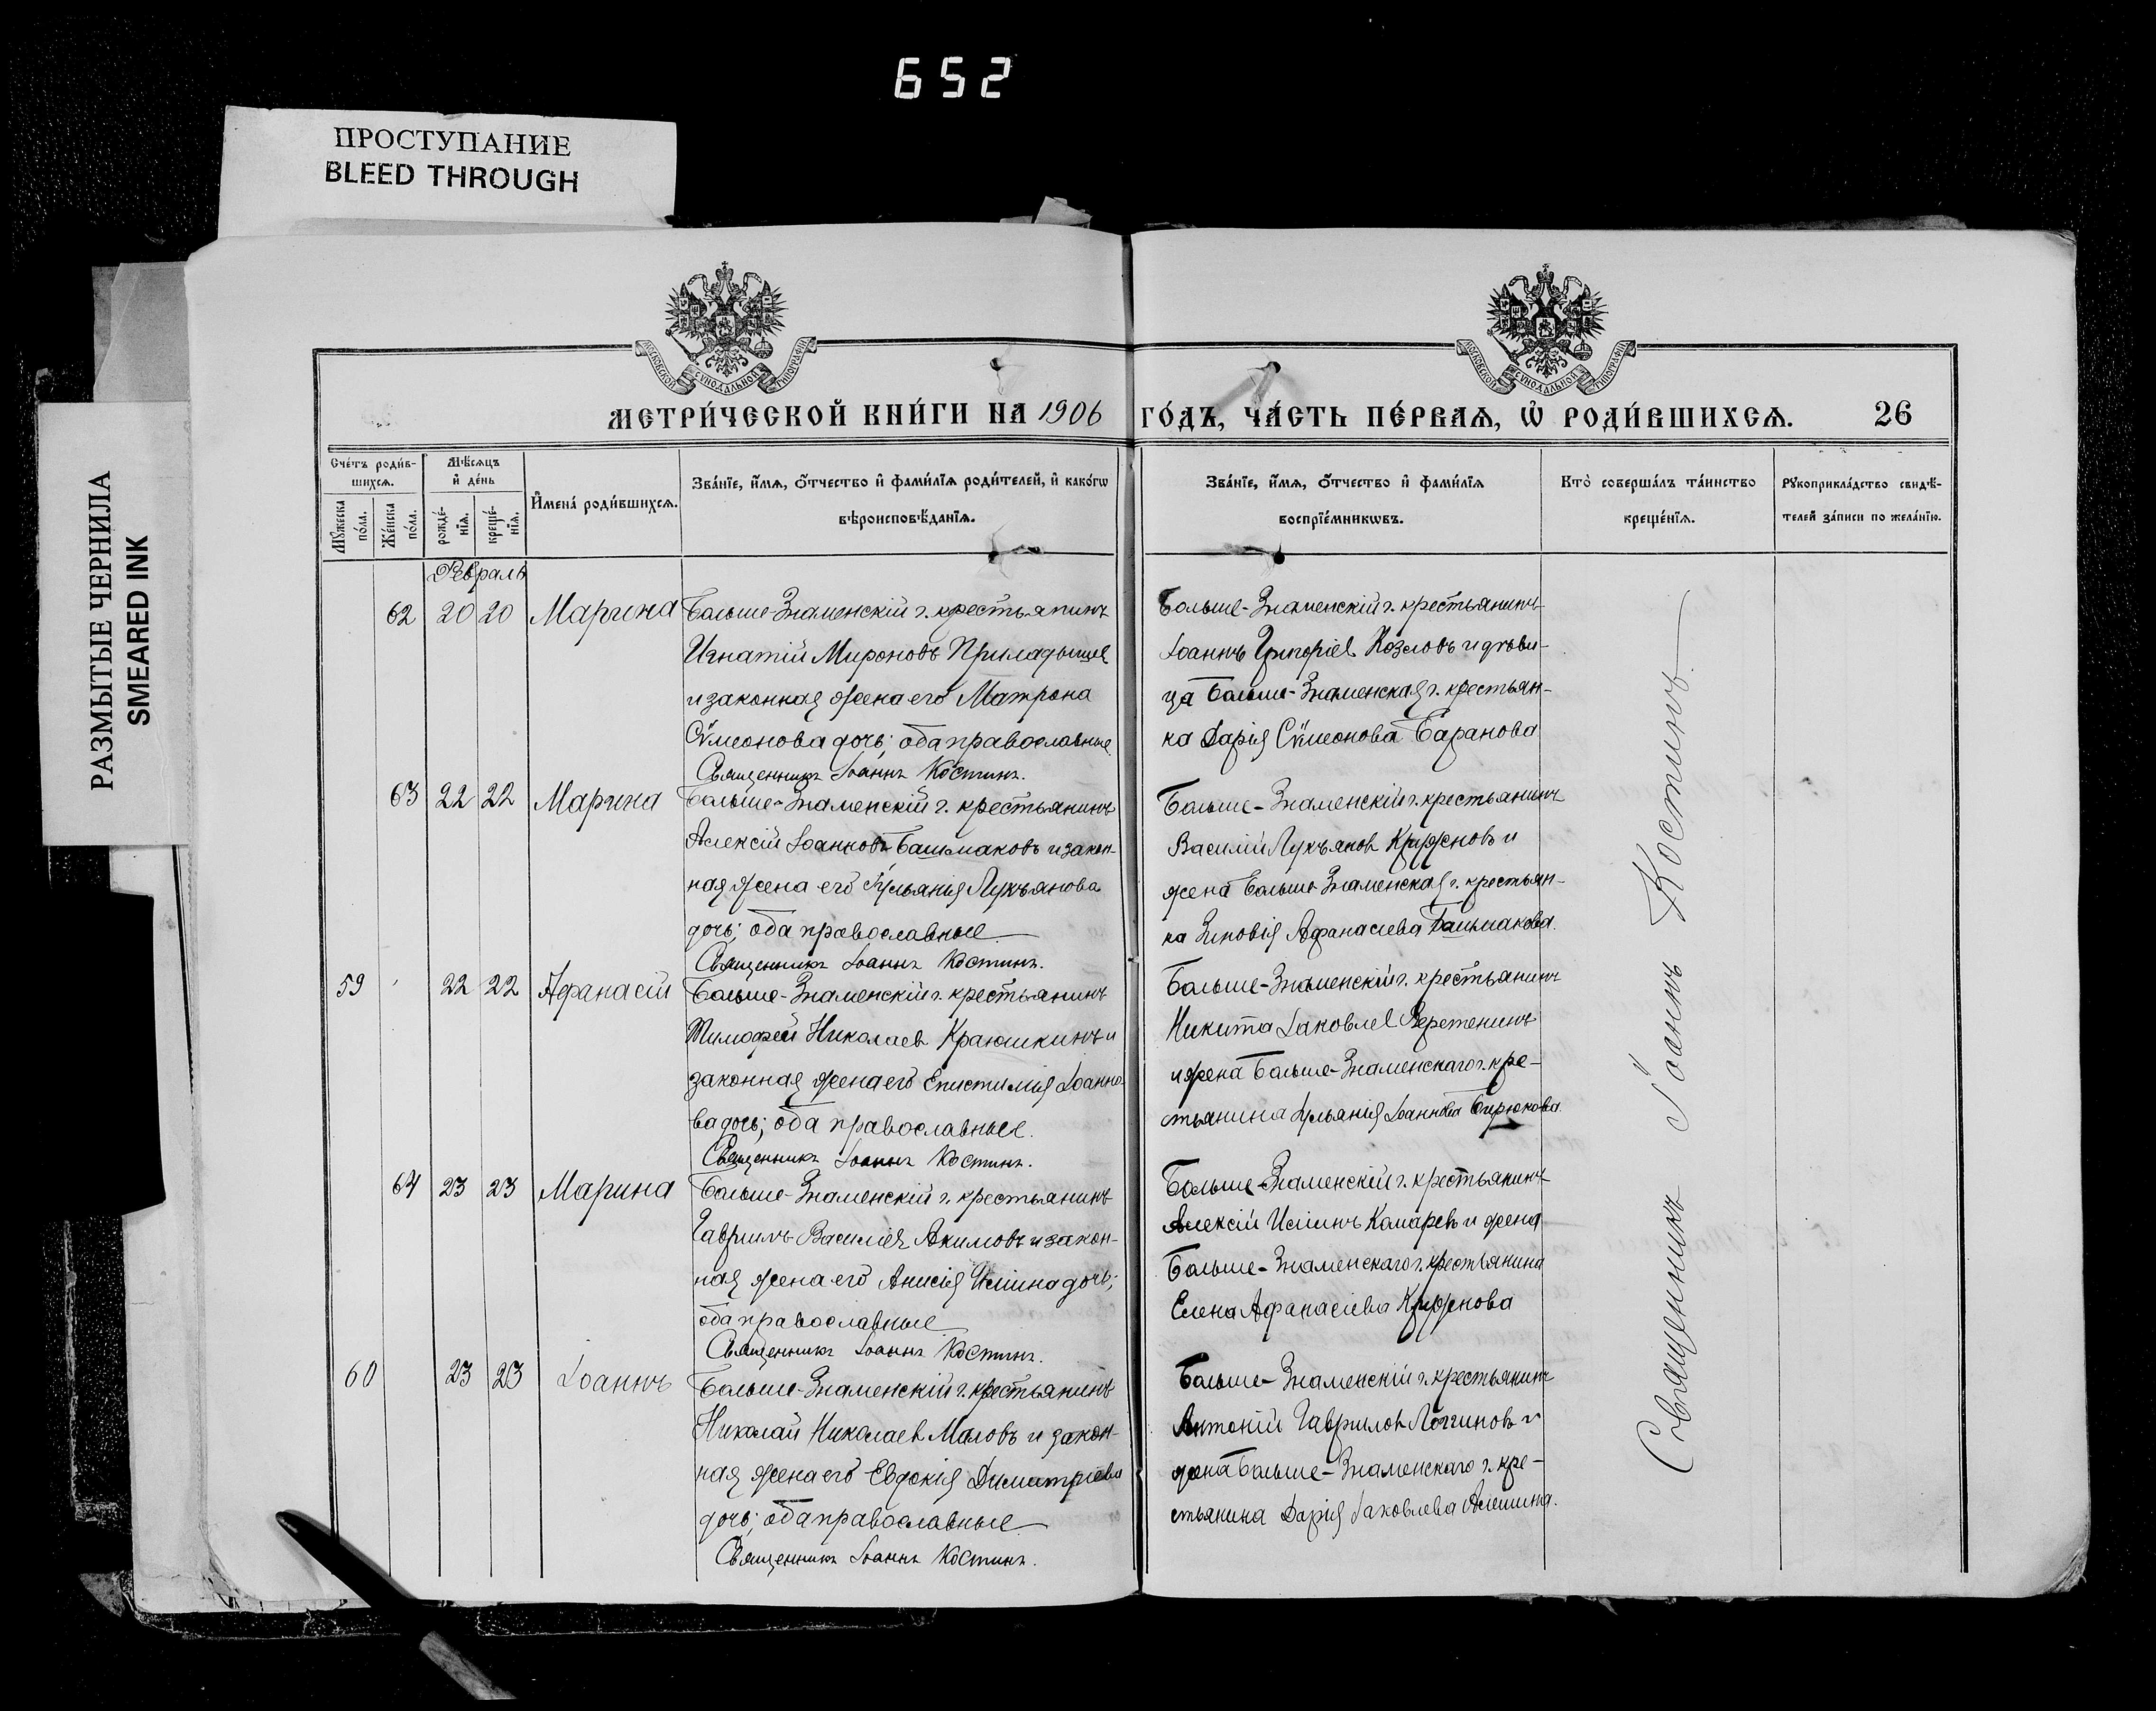 652
ПРОСТУПАНИЕ
BLEED THROUGH
РАЗМЫТЫЕ ЧЕРНИЛА
SMEARED INK
МОСКОВСКОЙ СѴНОДАЛЬНОЙ ТИПОГРАФІИ
МОСКОВСКОЙ СѴНОДАЛЬНОЙ ТИПОГРАФІИ
МЕТРИ́ЧЕСКОЙ КНИ́ГИ НА 1906 ГО́ДЪ, ЧА́СТЬ ПЕ́РВАЯ, Ѡ РОДИ́ВШИХСЯ. 26
Сче́тъ роди́в-
шихся.
Мꙋ́жеска
по́ла.
Же́нска
по́ла.
Мѣ́сяцъ
и҆ де́нь
рожде́-
нїя.
креще́-
нїя.
И҆мена̀ роди́вшихся.
Зва́нїе, и҆́мя, о҆́тчество и҆ фами́лїя роди́телей, и҆ како́гѡ
вѣроисповѣ́данїя.
Зва́нїе, и҆́мя, о҆́тчество и҆ фами́лїя
воспрїе́мникѡвъ.
Кто̀ соверша́лъ та́инство
креще́нїя.
Рꙋкоприкла́дство свидѣ́-
телей за́писи по жела́нїю.
Февраль
62 20 20 Марина
Больше-Знаменскій г. крестьянинъ
Игнатій Мироновъ
и законная жена его Матрона
Сѵмеонова дочь; оба православные
Священникъ Іоаннъ Костинъ.
Больше-Знаменскій г. крестьянинъ
Іоаннъ Григоріев Козловъ и дѣви-
ца Больше-Знаменская г. крестьян-
ка Дарія Сѵмеонова Баранова
63 22 22 Марина
Больше-Знаменскій г. крестьянинъ
Алексій Іоанновъ Башмаковъ и закон-
ная жена его Іуліанія Лукьянова
дочь; оба православные
Священникъ Іоаннъ Костинъ.
Больше-Знаменскій г. крестьянинъ
Василій Лукьянов и
жена Больше-Знаменская г. крестьян-
ка Зиновія Афанасіева Башмакова.
59 22 22 Афанасій
Больше-Знаменскій г. крестьянинъ
Тимофей Николаев Краюшкинъ и
законная жена его Епистимія Іоанно-
ва дочь; оба православные.
Священникъ Іоаннъ Костинъ.
Больше-Знаменскій г. крестьянинъ
Никита Іаковлев Веретенинъ
и жена Больше-Знаменскаго г. кре-
стьянина Іуліанія Іоаннова Бирюкова.
64 23 23 Марина
Больше-Знаменскій г. крестьянинъ
Гавриилъ Василіев Акимовъ и закон-
ная жена его Анисія дочь;
оба православные
Священникъ Іоаннъ Костинъ.
Больше-Знаменскій г. крестьянинъ
Алексій и жена
Больше-Знаменскаго г. крестьянина
Елена Афанасіева
60 23 23 Іоаннъ
Больше-Знаменскій г. крестьянинъ
Николай Николаев Маловъ и закон-
ная жена его Евдокія Димитріева
дочь; оба православные
Священникъ Іоаннъ Костинъ.
Больше-Знаменскій г. крестьянинъ
Антоній Гаврилов Логгиновъ и
жена Больше-Знаменскаго г. кре-
стьянина Дарія Іаковлева Алешина.
Священникъ Іоаннъ Костинъ